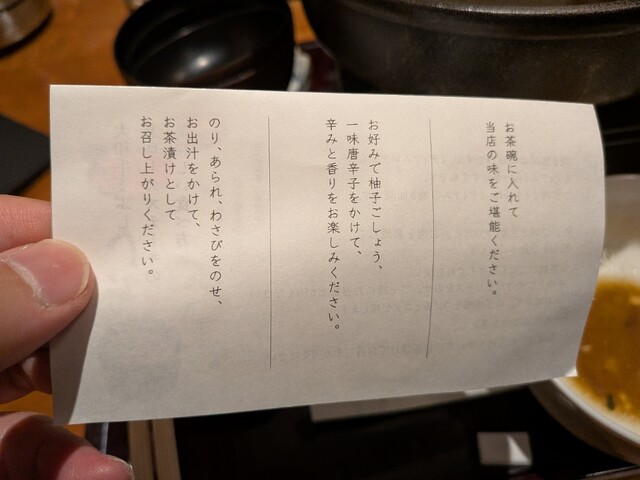 お茶碗に入れて
当店の味をご堪能ください。
お好みで柚子ごしょう、
一味唐辛子をかけて、
辛みと香りをお楽しみください。
のり、あられ、わさびをのせ、
お出汁をかけて、
お茶漬けとして
お召し上がりください。